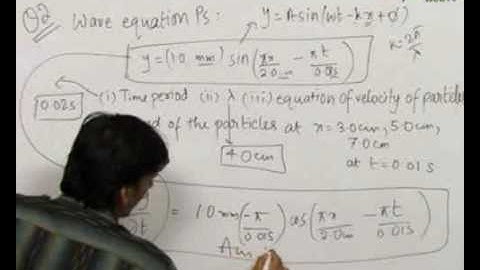 Q2 Wave equation Ps: y=Asin(wt-kx+φ)
k=2π/λ
y=(10 mm) sin(πx/2.0cm - πt/0.01s)
0.02s (i) Time period (ii) λ (iii) equation of velocity of particles
of the particles at x=3.0cm, 5.0cm,
7.0cm
4.0cm at t=0.01s
= 10mm(-π/0.01s) cos(πx/2.0cm - πt/0.01s)